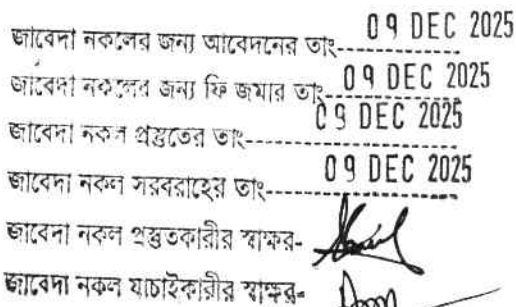 জাবেদা নকলের জন্য আবেদনের তাং----------- 09 DEC 2025
জাবেদা নকলের জন্য ফি জমার তাং----------- 09 DEC 2025
জাবেদা নকল প্রস্তুতের তাং----------- 09 DEC 2025
জাবেদা নকল সরবরাহের তাং----------- 09 DEC 2025
জাবেদা নকল প্রস্তুতকারীর স্বাক্ষর-
জাবেদা নকল যাচাইকারীর স্বাক্ষর-